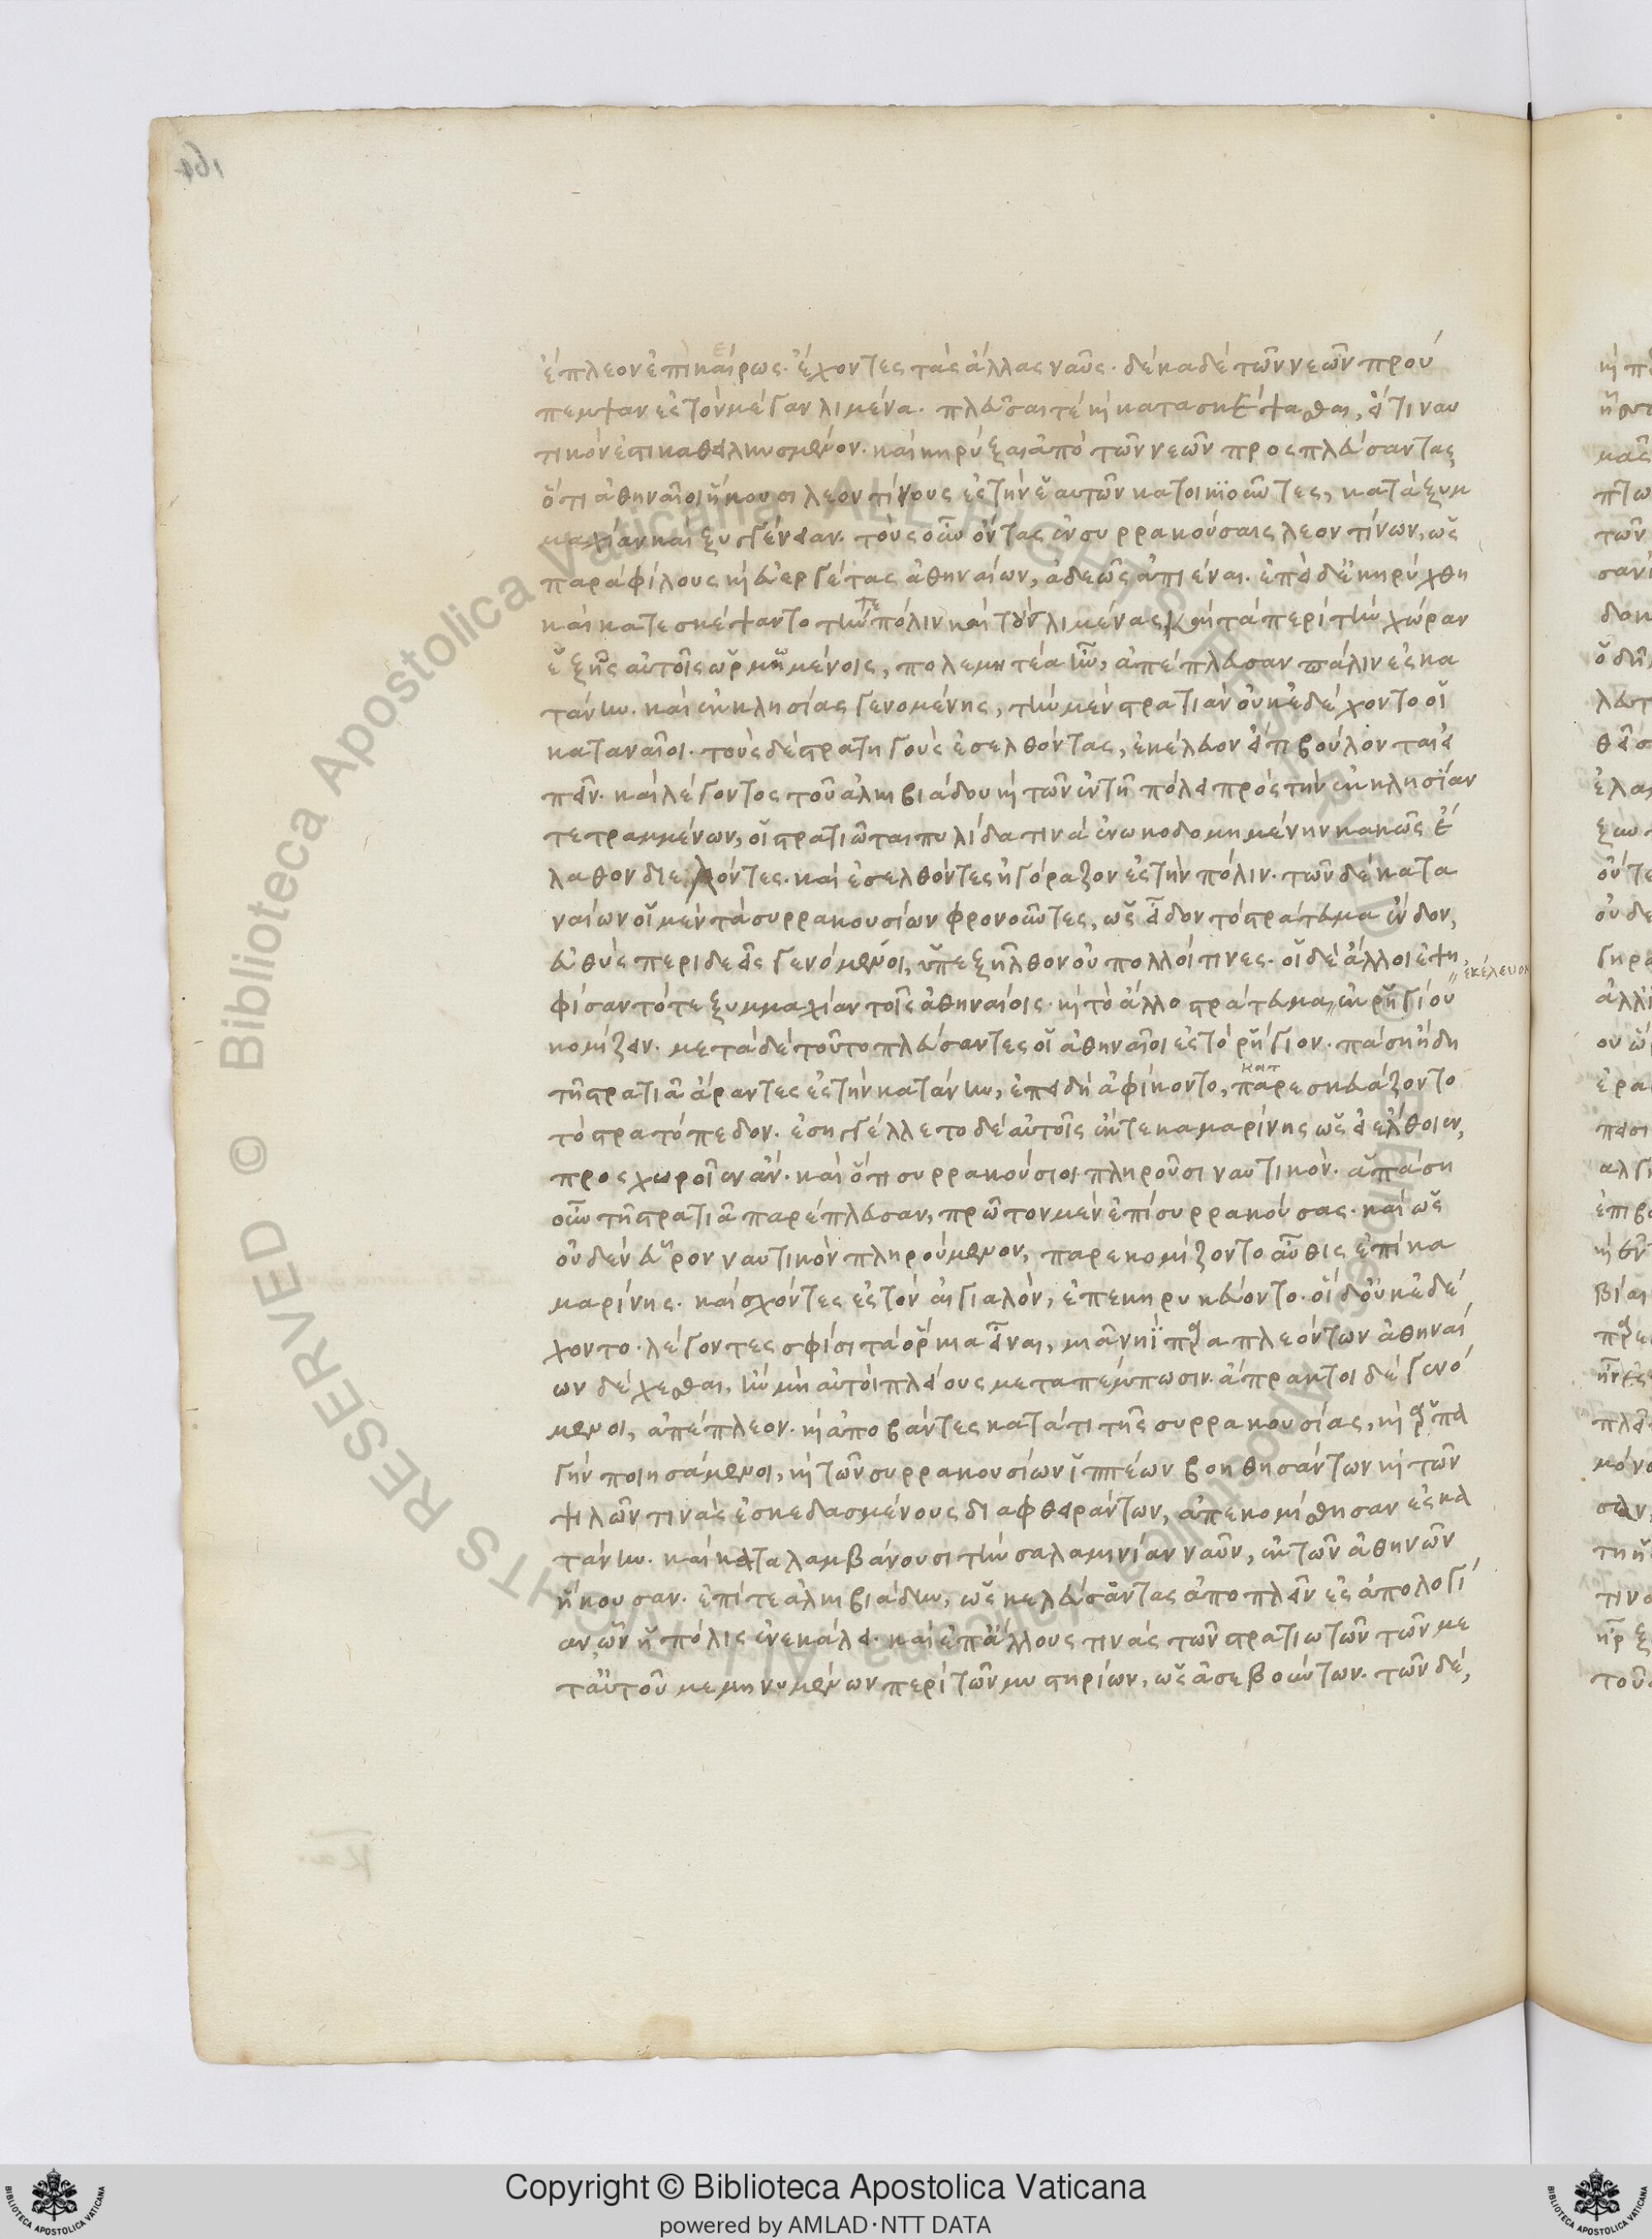 ἔπλεον ἐπικαίρως. ἔχοντες τὰς ἄλλας ναῦς. δέκα δὲ τῶν νεῶν πρού
πεμψαν ἐς τὸν μέγαν λιμένα. πλεῦσαι τὲ κὶ κατασκέψασθαι, εἴ τι ναυ
τικόν ἐστι καθειλκυσμένον. καὶ κηρύξαι ἀπὸ τῶν νεῶν προσπλεύσαντας
ὅτι ἀθηναῖοι ἥκουσι λεοντίνους ἐς τὴν ἑαυτῶν κατοικιοῦντες, κατὰ ξυμ
μαχίαν καὶ ξυγγένειαν. τοὺς οὖν ὄντας ἐν συρρακούσαις λεοντίνων, ὡς
παρὰ φίλους κὶ εὐεργέτας ἀθηναίων, ἀδεῶς ἀπιέναι. ἐπεὶ δὲ κηρύχθη
καὶ κατεσκέψαντο τήν τε πόλιν καὶ τοὺς λιμένας κὶ τὰ περὶ τὴν χώραν
ἐξ ἧς αὐτοῖς ὡρμημένοις, πολεμητέα ἦν, ἀπέπλευσαν πάλιν ἐς κα
τάνην. καὶ ἐκκλησίας γενομένης, τὴν μὲν στρατιὰν οὐκ ἐδέχοντο οἱ
καταναῖοι. τοὺς δὲ στρατηγοὺς ἐσελθόντας, ἐκέλευον εἴ τι βούλονται εἰ
πεῖν. καὶ λέγοντος τοῦ ἀλκιβιάδου κὶ τῶν ἐν τῇ πόλει πρὸς τὴν ἐκκλησίαν
τετραμμένων, οἱ στρατιῶται πυλίδα τινὰ ἐνῳκοδομημένην κακῶς ἔ
λαθον διελόντες. καὶ ἐσελθόντες ἠγόραζον ἐς τὴν πόλιν. τῶν δὲ κατα
ναίων οἱ μὲν τὰ συρρακουσίων φρονοῦντες, ὡς εἶδον τὸ στράτευμα ἔνδον,
εὐθὺς περιδεεῖς γενόμενοι, ὑπεξῆλθον οὐ πολλοί τινες. οἱ δὲ ἄλλοι ἐψη
φίσαντό τε ξυμμαχίαν τοῖς ἀθηναίοις. κὶ τὸ ἄλλο στράτευμα ἐκέλευον ἐκ ῥηγίου
κομίζειν. μετὰ δὲ τοῦτο πλεύσαντες οἱ ἀθηναῖοι ἐς τὸ ῥήγιον. πάσῃ ἤδη
τῇ στρατιᾷ ἄραντες ἐς τὴν κατάνην, ἐπειδὴ ἀφίκοντο, κατ παρεσκευάζοντο
τὸ στρατόπεδον. ἐσηγγέλλετο δὲ αὐτοῖς ἔκ τε καμαρίνης ὡς εἰ ἔλθοιεν,
προσχωροῖεν ἄν. καὶ ὅτι συρρακούσιοι πληροῦσι ναυτικόν. ἁπάσῃ
οὖν τῇ στρατιᾷ παρέπλευσαν, πρῶτον μὲν ἐπὶ συρρακούσας. καὶ ὡς
οὐδὲν εὗρον ναυτικὸν πληρούμενον, παρεκομίζοντο αὖθις ἐπὶ κα
μαρίνης. καὶ σχόντες ἐς τὸν αἰγιαλόν, ἐπεκηρυκεύοντο. οἱ δ' οὐκ ἐδέ
χοντο. λέγοντες σφίσι τὰ ὅρκια εἶναι, μιᾷ νηῒ καταπλεόντων ἀθηναί
ων δέχεσθαι, ἢν μὴ αὐτοὶ πλείους μεταπέμπωσιν. ἄπρακτοι δὲ γενό
μενοι, ἀπέπλεον. κὶ ἀποβάντες κατά τι τῆς συρρακουσίας, κὶ ἁρπα
γὴν ποιησάμενοι, κὶ τῶν συρρακουσίων ἱππέων βοηθησάντων κὶ τῶν
ψιλῶν τινὰς ἐσκεδασμένους διαφθειράντων, ἀπεκομίσθησαν ἐς κα
τάνην. καὶ καταλαμβάνουσι τὴν σαλαμινίαν ναῦν, ἐκ τῶν ἀθηνῶν
ἥκουσαν. ἐπί τε ἀλκιβιάδην, ὡς κελεύσαντας ἀποπλεῖν ἐς ἀπολογί
αν, ὧν ἡ πόλις ἐνεκάλει. καὶ ἐπ' ἄλλους τινὰς τῶν στρατιωτῶν τῶν με
τ' αὐτοῦ μεμηνυμένων περὶ τῶν μυστηρίων, ὡς ἀσεβούντων. τῶν δὲ,
Biblioteca Apostolica Vaticana
Copyright © Biblioteca Apostolica Vaticana
powered by AMLAD·NTT DATA